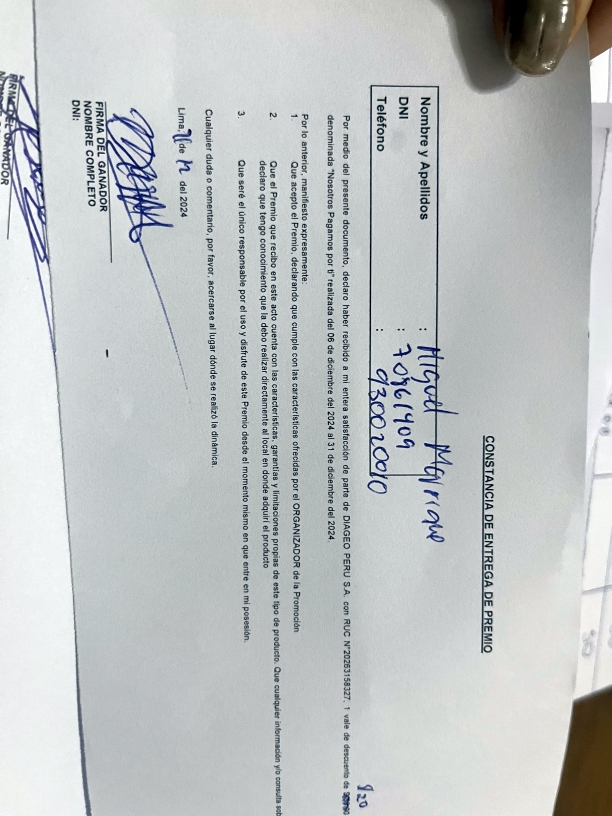 CONSTANCIA DE ENTREGA DE PREMIO
Nombre y Apellidos : Miguel Manrique
DNI : 70961409
Teléfono : 930020010
Por medio del presente documento, declaro haber recibido a mi entera satisfacción de parte de DIAGEO PERU S.A. con RUC N°20263158327, 1 vale de descuento de
denominada "Nosotros Pagamos por ti" realizada del 06 de diciembre del 2024 al 31 de diciembre del 2024.
Por lo anterior, manifiesto expresamente:
1. Que acepto el Premio, declarando que cumple con las características ofrecidas por el ORGANIZADOR de la Promoción
2. Que el Premio que recibo en este acto cuenta con las características, garantías y limitaciones propias de este tipo de producto. Que cualquier información y/o consulta sob
declaro que tengo conocimiento que la debo realizar directamente al local en donde adquirí el producto
3. Que seré el único responsable por el uso y disfrute de este Premio desde el momento mismo en que entre en mi posesión.
Cualquier duda o comentario, por favor, acercarse al lugar dónde se realizó la dinámica.
Lima, de 12 del 2024
FIRMA DEL GANADOR
NOMBRE COMPLETO
DNI:
FIRMA DEL GANADOR